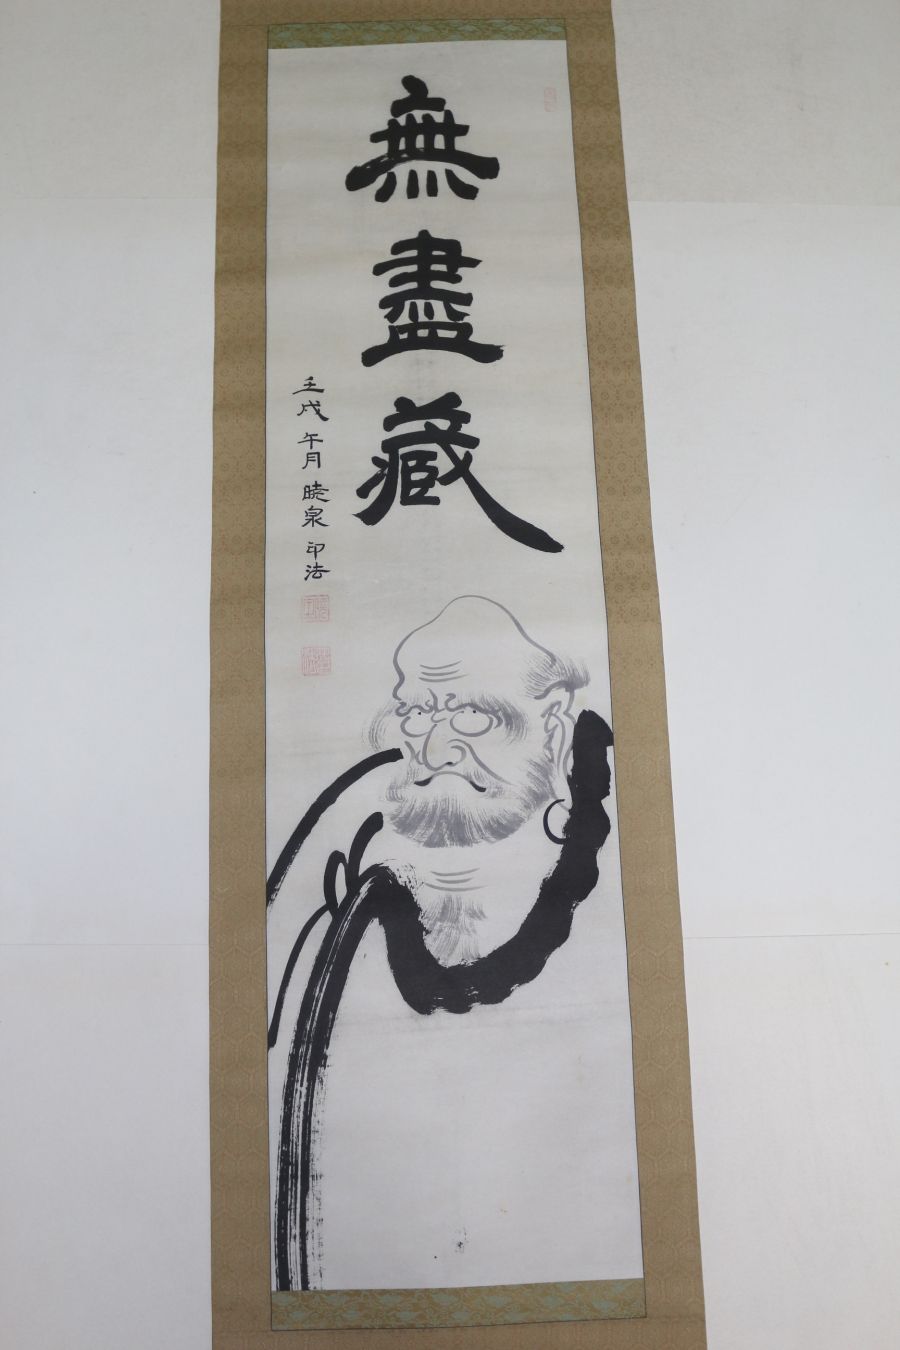 無盡藏
壬戌午月暁泉印法